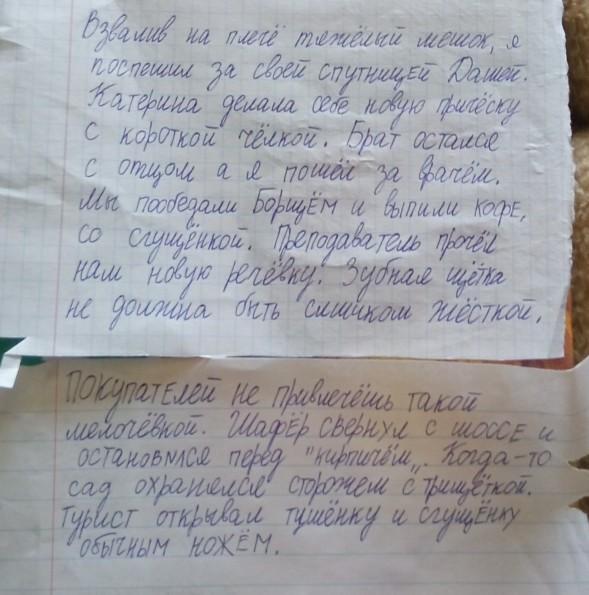 Взвалив на плечё тяжёлый мешок, я
поспешил за своей спутницей Дашей.
Катерина делала себе новую причёску
с короткой чёлкой. Брат остался
с отцом а я пошёл за врачём.
Мы пообедали Борщём и выпили кофе,
со сгущёнкой. Преподаватель прочёл
нам новую речёвку. Зубная щётка
не должна быть слишком жёсткой.
Покупателей не привлечёшь такой
мелочёвкой. Шафёр свернул с шоссе и
остановился перед "кирпичём". Когда-то
сад охранялся сторожем с трищёткой.
Турист открывал тушёнку и сгущёнку
обычным ножём.